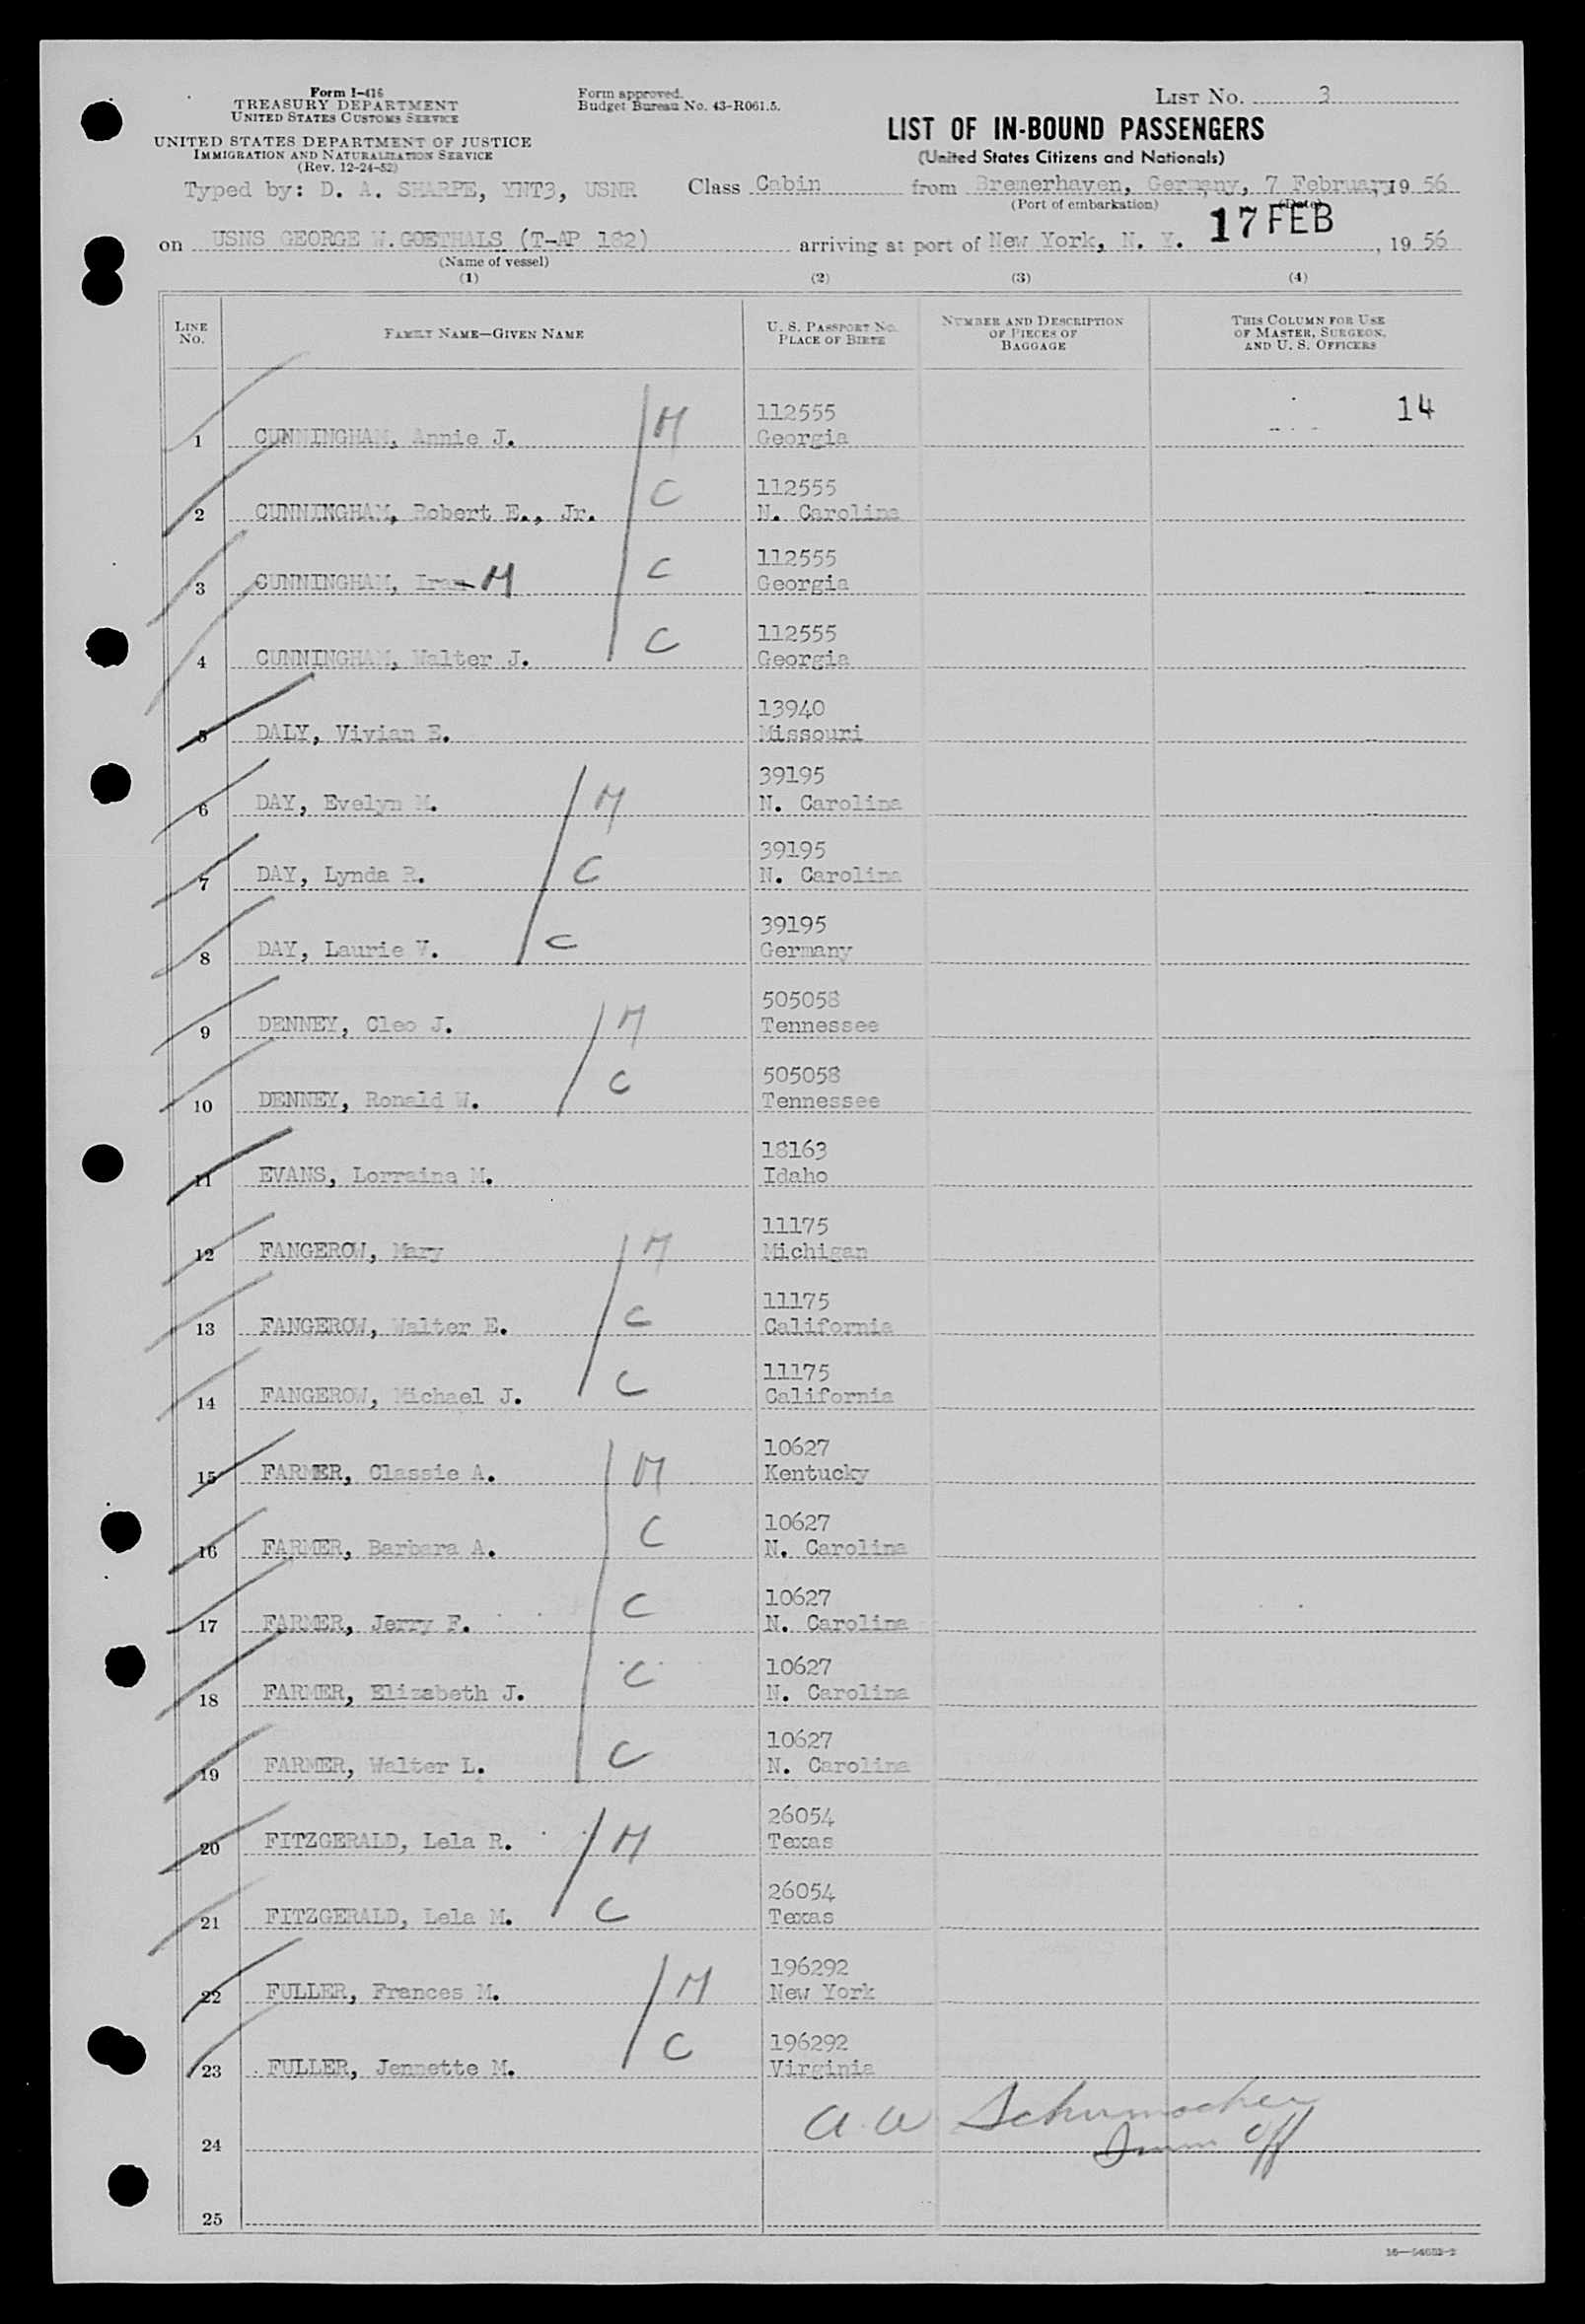 Form I-416
TREASURY DEPARTMENT
UNITED STATES CUSTOMS SERVICE
UNITED STATES DEPARTMENT OF JUSTICE
IMMIGRATION AND NATURALIZATION SERVICE
(Rev. 12-24-52)
Form approved.
Budget Bureau No. 43-R061.5.
LIST No. 3
LIST OF IN-BOUND PASSENGERS
(United States Citizens and Nationals)
Typed by: D. A. SHARPE, YNT3, USNR Class Cabin from Bremerhaven, Germany, 7 February, 19 56
(Port of embarkation) (Date)
on USNS GEORGE W. GOETHALS (T-AP 182) arriving at port of New York, N. Y. 17 FEB, 19 56
(Name of vessel)
(1) (2) (3) (4)
LINE No. FAMILY NAME—GIVEN NAME U. S. PASSPORT No. PLACE OF BIRTH NUMBER AND DESCRIPTION OF PIECES OF BAGGAGE THIS COLUMN FOR USE OF MASTER, SURGEON, AND U. S. OFFICERS
112555 14
1 CUNNINGHAM, Annie J. M Georgia
112555
2 CUNNINGHAM, Robert E., Jr. C N. Carolina
112555
3 CUNNINGHAM, Ira M C Georgia
112555
4 CUNNINGHAM, Walter J. C Georgia
13940
5 DALY, Vivian E. Missouri
39195
6 DAY, Evelyn M. M N. Carolina
39195
7 DAY, Lynda R. C N. Carolina
39195
8 DAY, Laurie V. C Germany
505058
9 DENNEY, Cleo J. M Tennessee
505058
10 DENNEY, Ronald W. C Tennessee
18163
11 EVANS, Lorraine M. Idaho
11175
12 FANGEROW, Mary M Michigan
11175
13 FANGEROW, Walter E. C California
11175
14 FANGEROW, Michael J. C California
10627
15 FARMER, Classie A. M Kentucky
10627
16 FARMER, Barbara A. C N. Carolina
10627
17 FARMER, Jerry F. C N. Carolina
10627
18 FARMER, Elizabeth J. C N. Carolina
10627
19 FARMER, Walter L. C N. Carolina
26054
20 FITZGERALD, Lela R. M Texas
26054
21 FITZGERALD, Lela M. C Texas
196292
22 FULLER, Frances M. M New York
196292
23 FULLER, Jennette M. C Virginia
A. W. Schumacher
24 Imm Off
25